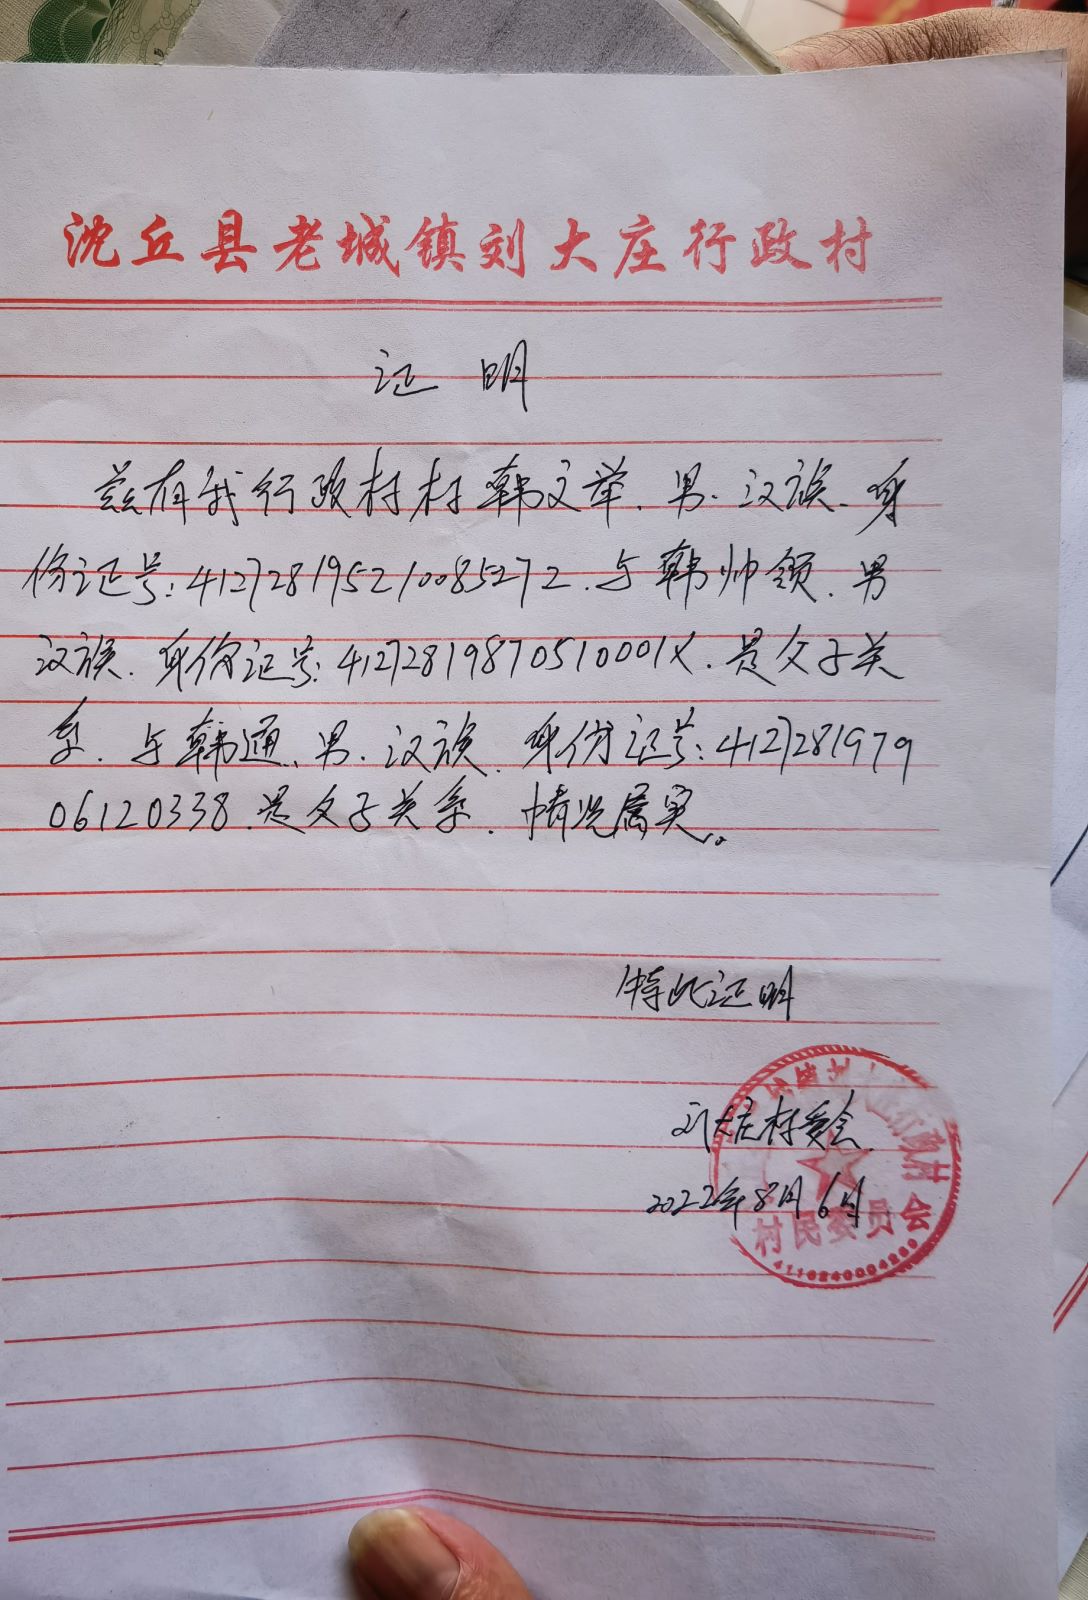 沈丘县老城镇刘大庄行政村
证明
兹有我行政村村韩文举、男、汉族、身
份证号:412728195210085272、与韩帅领、男
汉族、身份证号:41272819870510001X、是父子关
系、与韩通、男、汉族、身份证号:4127281979
06120338、是父子关系、情况属实。
特此证明
刘大庄村委会
2022年8月6日
行政村
村民委员会